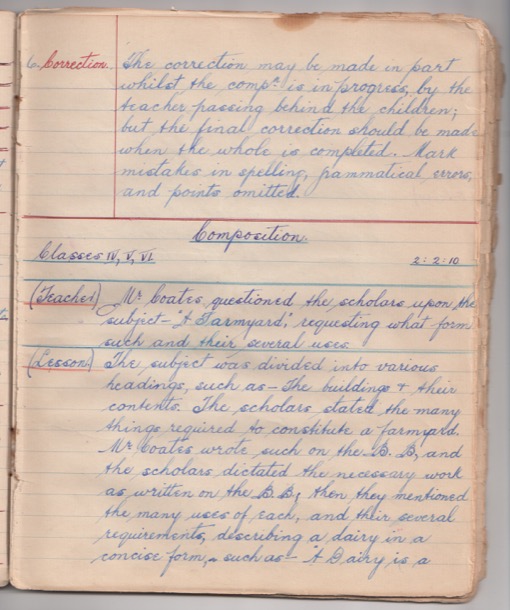 6. Correction. The correction may be made in part
whilst the compn. is in progress, by the
teacher passing behind the children;
but the final correction should be made
when the whole is completed. Mark
mistakes in spelling, grammatical errors,
and points omitted.
Composition.
Classes IV, V, VI 2:2:10
(Teacher) Mr Coates, questioned the scholars upon the
subject - "A Farmyard," requesting what form
such and their several uses.
(Lesson) The subject was divided into various
headings, such as - The buildings & their
contents. The scholars stated the many
things required to constitute a farmyard.
Mr Coates wrote such on the B. B, and
the scholars dictated the necessary work
as written on the B.B; then they mentioned
the many uses of each, and their several
requirements, describing a dairy in a
concise form, - such as - "A Dairy is a